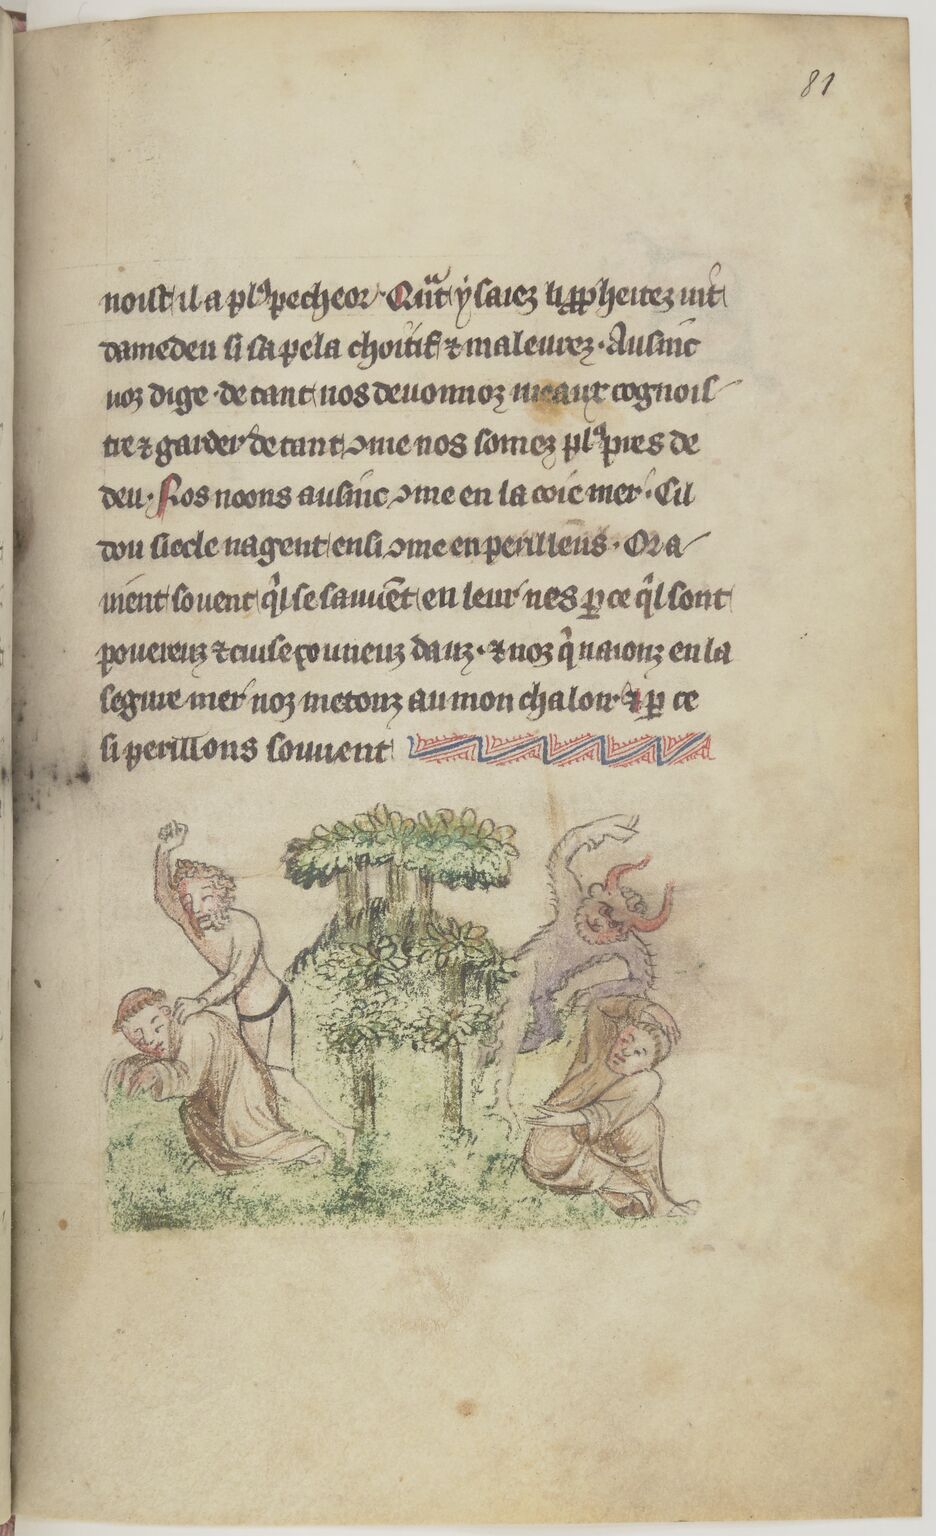 81
noist il a plꝰ pecheor. Qu̅t ysaiez li ꝓpheitez vit
damedeu si sapela choitif ⁊ maleurez. Ausinc
voz dige. de tant nos devonnoz meaux cognois-
tre ⁊ garder de tant ꝯme nos somez plꝰ pres de
deu. Nos noons ausinc ꝯme en la coie mer. Cil
dou siecle nagent ensi ꝯme en perilleus. Or a-
vient sovent q̇l se sauvēt en leur nes ꝑ ce q̇l sont
⁊ noz q̇ naionz en la
segure mer noz metonz au mon chalon. ⁊ ꝑ ce
si perillons souvent